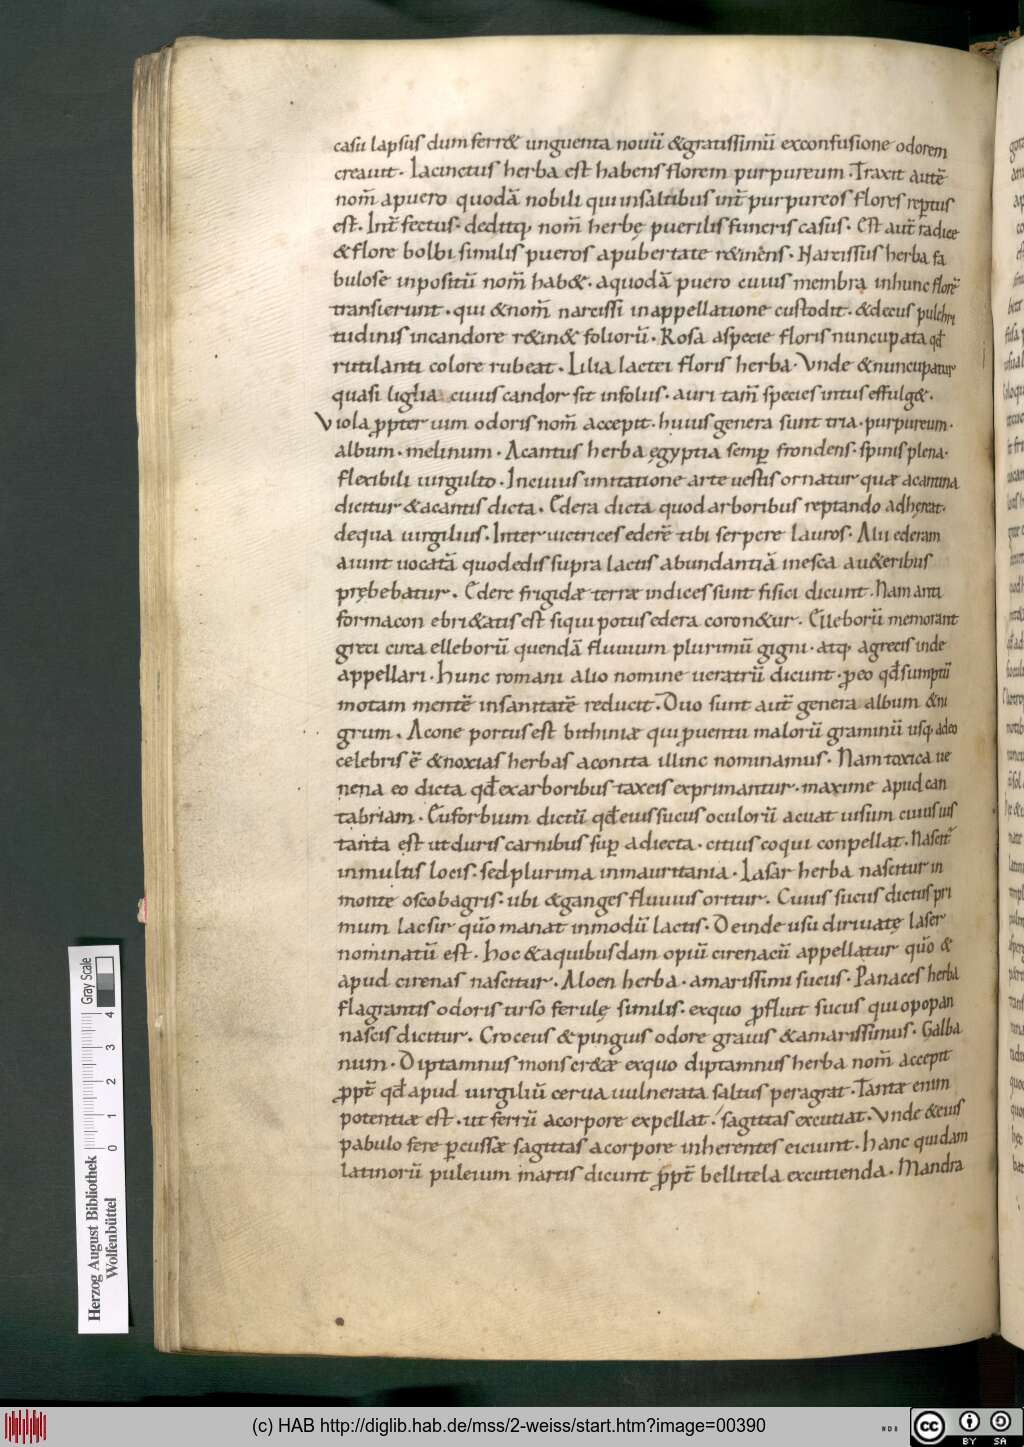 casu lapsus dum ferr& unguenta nouū &gratissimū exconfusione odorem
creauit. Iacinctus herba est habens florem purpureum. Traxit autē
nom̄ apuero quodā nobili qui insaltibus int̄ purpureos flores rep̄tus
est. Int̄fectus. deditq; nom̄ herbę puerilis funeris casus. Est aut̄ radice
&flore bolbi similis pueros apubertate r&inens. Narcissus herba fa
bulose inpositū nom̄ hab&. aquodā puero cuius membra inhunc florē
transierunt. qui &nom̄ narcissi inappellatione custodit. &decus pulchri
tudinis incandore r&in& foliorū. Rosa aspecie floris nuncupata qd̄
rutilanti colore rubeat. Lilia lactei floris herba. Vnde &nuncupatur
quasi liglia cuius candor sit infolus. auri tam̄ species intus effulg&.
Viola ꝓpter uim odoris nom̄ accepit. huius genera sunt tria. purpureum.
album. melinum. Acantus herba ęgyptia semꝑ frondens. spinis plena.
flexibili uirgulto. Incuius imitatione arte uestis ornatur quæ acantina
dicitur &acantis dicta. Edera dicta quod arboribus reptando adhęreat.
dequa uirgilius. Inter uictrices ederē tibi serpere lauros. Alii ederam
aiunt uocatā quodedis supra lactis abundantiā inesca au&eribus
prębebatur. Edere frigidæ terræ indices sunt fisici dicunt. Nam anti
formacon ebri&atis est siqui potus edera coron&ur. Elleborū memorant
greci circa elleborū quendā fluuium plurimū gigni. atq; agrecis inde
appellari. hunc romani alio nomine ueratrū dicunt. ꝓeo qd̄ sumptū
motam mentē insanitatē reducit. Duo sunt aut̄ genera album &ni
grum. Acone portus est bithiniæ qui ꝓuentu malorū graminū usq; adeo
celebris ē &noxias herbas aconita illinc nominamus. Nam toxica ue
nena eo dicta qd̄ exarboribus taxeis exprimantur. maxime apud can
tabriam. Euforbium dictū qd̄ eius sucus oculorū acuat uisum cuius uis
tanta est utduris carnibus suꝑ adiecta. citius coqui conpellat. Nascit̄
inmultis locis. sed plurima inmauritania. Lasar herba nascitur in
monte oscobagris. ubi &ganges fluuius oritur. Cuius sucus dictus pri
mum lacsir qūo manat inmodū lactis. Deinde usu diriuatę laser
nominatū est. hoc &aquibusdam opiū cirenacū appellatur qūo &
apud cirenas nascitur. Aloen herba. amarissimi sucus. Panaces herba
flagrantis odoris tirso ferulę similis. exquo ꝓfluit sucus qui opopan
nascis dicitur. Croceus &pinguis odore grauis &amarissimus. Galba
num. Diptamnus mons cr&æ exquo diptamnus herba nom̄ accepit
ꝓpt̄ qd̄ apud uirgiliū cerua uulnerata saltus peragrat. Tantæ enim
potentiæ est. ut ferrū acorpore expellat. sagittas excutiat. Vnde &eius
pabulo fere ꝑcussæ sagittas acorpore inherentes eiciunt. hanc quidam
latinorū puleium martis dicunt ꝓpt̄ bellitela excutienda. Mandra
Gray Scale
0 1 2 3 4
Herzog August Bibliothek
Wolfenbüttel
(c) HAB http://diglib.hab.de/mss/2-weiss/start.htm?image=00390
NDB
cc BY SA